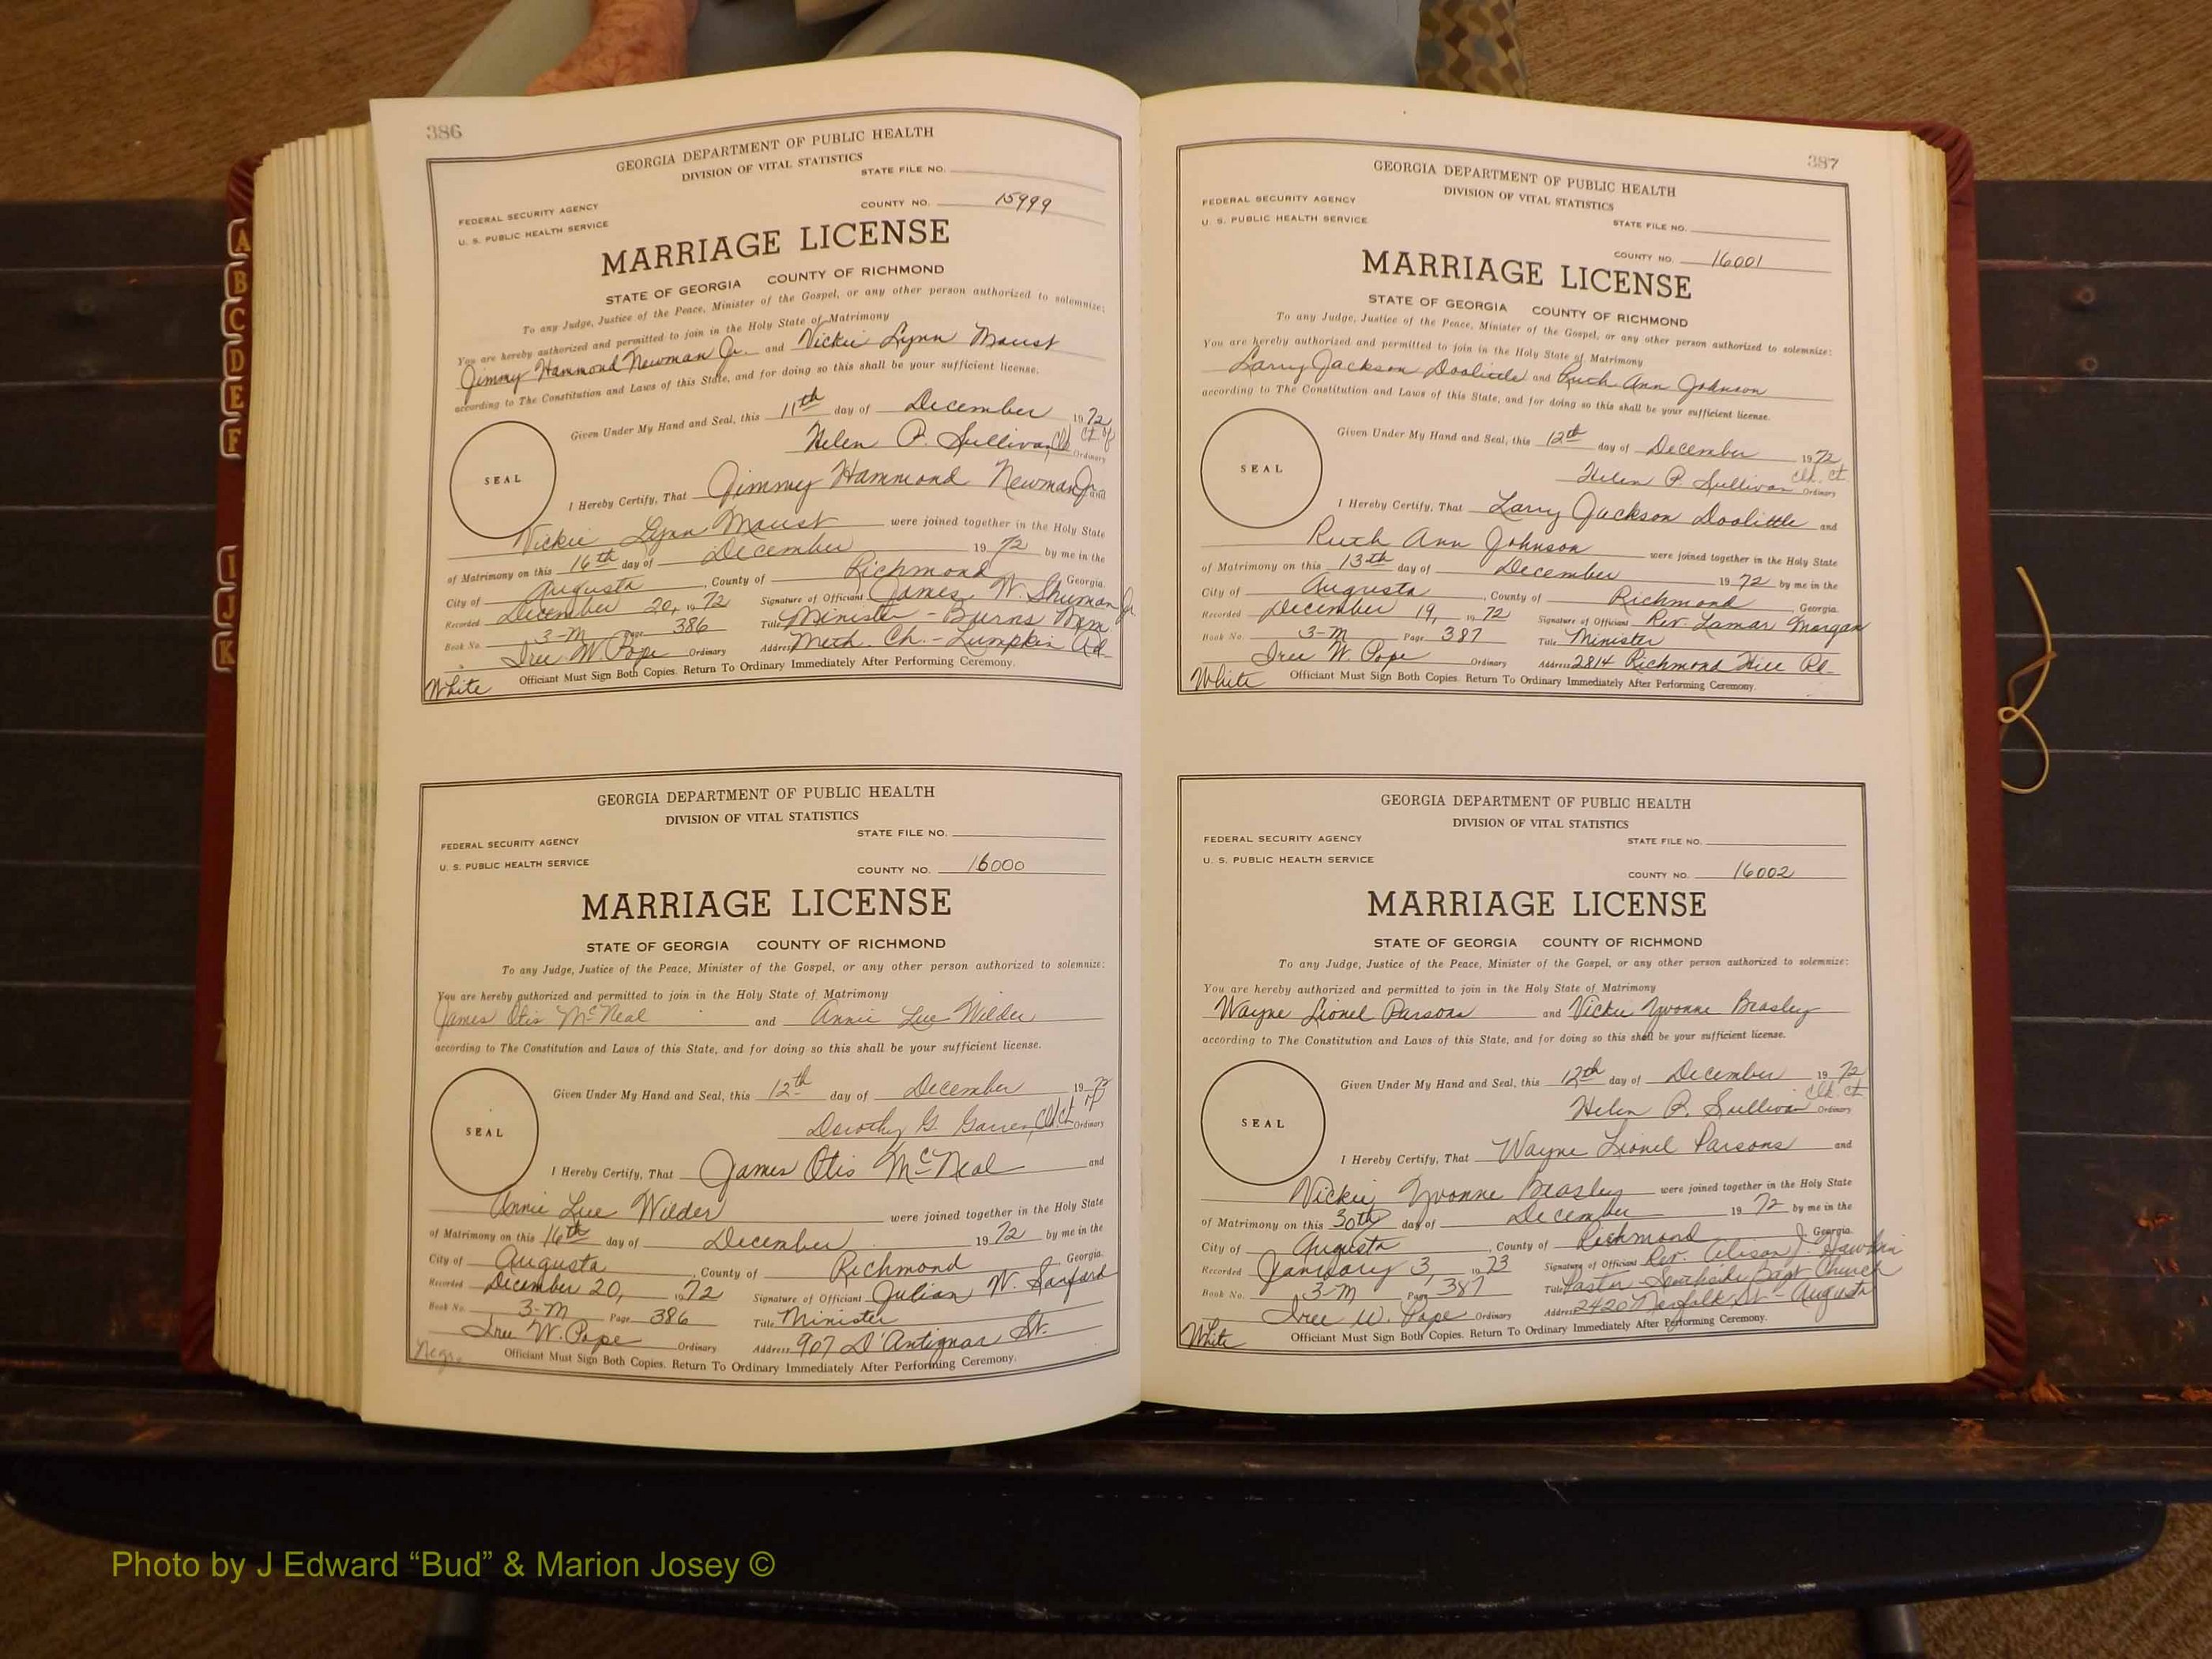 386
GEORGIA DEPARTMENT OF PUBLIC HEALTH
DIVISION OF VITAL STATISTICS
STATE FILE NO.
FEDERAL SECURITY AGENCY
U. S. PUBLIC HEALTH SERVICE
COUNTY NO. 15999
MARRIAGE LICENSE
STATE OF GEORGIA COUNTY OF RICHMOND
To any Judge, Justice of the Peace, Minister of the Gospel, or any other person authorized to solemnize:
You are hereby authorized and permitted to join in the Holy State of Matrimony
Jimmy Hammond Newman Jr. and Vickie Lynn Maust
according to The Constitution and Laws of this State, and for doing so this shall be your sufficient license.
Given Under My Hand and Seal, this 11th day of December 1972
Helen P. Sullivan, Clk Ct. of Ordinary
SEAL
I Hereby Certify, That Jimmy Hammond Newman Jr. and
Vickie Lynn Maust were joined together in the Holy State
of Matrimony on this 16th day of December 1972 by me in the
City of Augusta, County of Richmond Georgia.
Recorded December 20, 1972 Signature of Officiant James W. Shuman Jr.
Book No. 3-M Page 386 Title Minister - Burns Mem.
Iree W. Pope Ordinary Address Meth. Ch. - Lumpkin Rd-
White Officiant Must Sign Both Copies. Return To Ordinary Immediately After Performing Ceremony.
GEORGIA DEPARTMENT OF PUBLIC HEALTH
DIVISION OF VITAL STATISTICS
STATE FILE NO.
FEDERAL SECURITY AGENCY
U. S. PUBLIC HEALTH SERVICE
COUNTY NO. 16000
MARRIAGE LICENSE
STATE OF GEORGIA COUNTY OF RICHMOND
To any Judge, Justice of the Peace, Minister of the Gospel, or any other person authorized to solemnize:
You are hereby authorized and permitted to join in the Holy State of Matrimony
James Otis McNeal and Annie Lue Wilder
according to The Constitution and Laws of this State, and for doing so this shall be your sufficient license.
Given Under My Hand and Seal, this 12th day of December 1972
Dorothy G. Clk Ct. of Ordinary
SEAL
I Hereby Certify, That James Otis McNeal and
Annie Lue Wilder were joined together in the Holy State
of Matrimony on this 16th day of December 1972 by me in the
City of Augusta, County of Richmond Georgia.
Recorded December 20, 1972 Signature of Officiant Julian W.
Book No. 3-M Page 386 Title Minister
Iree W. Pope Ordinary Address 907 D'Antignac St.
Negro Officiant Must Sign Both Copies. Return To Ordinary Immediately After Performing Ceremony.
387
GEORGIA DEPARTMENT OF PUBLIC HEALTH
DIVISION OF VITAL STATISTICS
FEDERAL SECURITY AGENCY
U. S. PUBLIC HEALTH SERVICE
STATE FILE NO.
COUNTY NO. 16001
MARRIAGE LICENSE
STATE OF GEORGIA COUNTY OF RICHMOND
To any Judge, Justice of the Peace, Minister of the Gospel, or any other person authorized to solemnize:
You are hereby authorized and permitted to join in the Holy State of Matrimony
Larry Jackson Doolittle and Ruth Ann Johnson
according to The Constitution and Laws of this State, and for doing so this shall be your sufficient license.
Given Under My Hand and Seal, this 12th day of December 1972
Helen P. Sullivan Clk. Ct. Ordinary
SEAL
I Hereby Certify, That Larry Jackson Doolittle and
Ruth Ann Johnson were joined together in the Holy State
of Matrimony on this 13th day of December 1972 by me in the
City of Augusta, County of Richmond, Georgia.
Recorded December 19, 1972 Signature of Officiant Rev. Lamar Morgan
Book No. 3-M Page 387 Title Minister
Iree W. Pope Ordinary Address 2814 Richmond Hill Rd-
White Officiant Must Sign Both Copies. Return To Ordinary Immediately After Performing Ceremony.
GEORGIA DEPARTMENT OF PUBLIC HEALTH
DIVISION OF VITAL STATISTICS
FEDERAL SECURITY AGENCY
STATE FILE NO.
U. S. PUBLIC HEALTH SERVICE
COUNTY NO. 16002
MARRIAGE LICENSE
STATE OF GEORGIA COUNTY OF RICHMOND
To any Judge, Justice of the Peace, Minister of the Gospel, or any other person authorized to solemnize:
You are hereby authorized and permitted to join in the Holy State of Matrimony
Wayne Lionel Parsons and Vickie Yvonne Beasley
according to The Constitution and Laws of this State, and for doing so this shall be your sufficient license.
Given Under My Hand and Seal, this 12th day of December 1972
Helen P. Sullivan Clk. Ct. Ordinary
SEAL
I Hereby Certify, That Wayne Lionel Parsons and
Vickie Yvonne Beasley were joined together in the Holy State
of Matrimony on this 30th day of December 1972 by me in the
City of Augusta, County of Richmond Georgia.
Recorded January 3, 1973 Signature of Officiant Rev. J.
Book No. 3-M Page 387 Title Pastor - Southside Bapt Church
Iree W. Pope Ordinary Address 2420 Norfolk St - Augusta
White Officiant Must Sign Both Copies. Return To Ordinary Immediately After Performing Ceremony.
A
B
C
D
E
F
I
J
K
Photo by J Edward “Bud” & Marion Josey ©